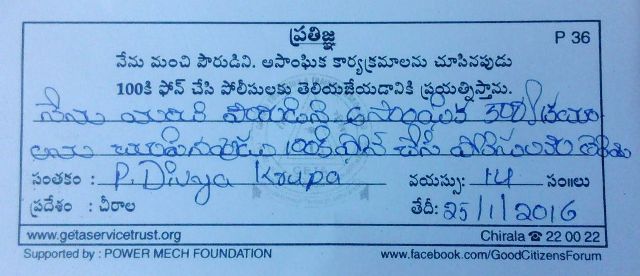 ప్రతిజ్ఞ
P 36
నేను మంచి పౌరుడిని. అసాంఘిక కార్యక్రమాలను చూసినపుడు
100కి ఫోన్ చేసి పోలీసులకు తెలియజేయడానికి ప్రయత్నిస్తాను.
నేను మంచి పౌరుడిని అసాంఘిక
100కి ఫోన్ చేసి
సంతకం : P. Divya Krupa వయస్సు: 14 సం॥లు
ప్రదేశం : చీరాల తేదీ: 25/1/2016
www.getaservicetrust.org Chirala ☎ 22 00 22
Supported by : POWER MECH FOUNDATION www.facebook.com/GoodCitizensForum